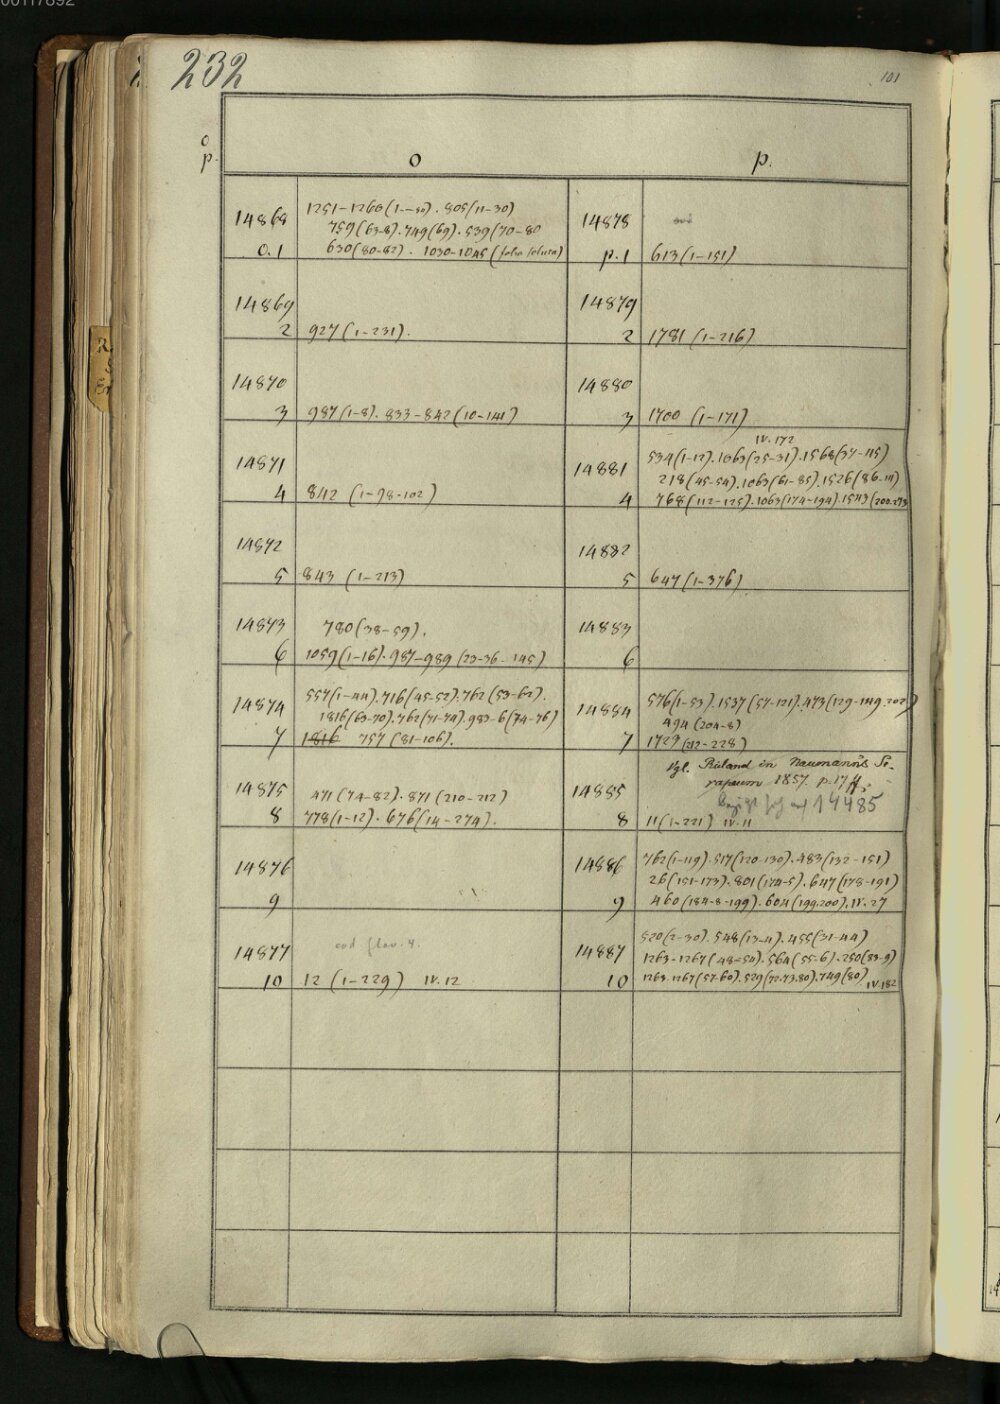 00117892
232
101
o
p.
o
p.
14868
o.1
1251-1266(1--10). 805(11-30)
759(63-8). 749(69). 539(70-80
630(80-82). 1030-1045 (folia soluta)
14869
2
927 (1-231).
14870
3
987(1-8). 833-842(10-141)
14871
4
842 (1-98-102)
14872
5
843 (1-213)
14873
6
780(38-59).
1059(1-16). 987-989 (23-36-145)
14874
7
557(1-44). 716(45-52). 762(53-62).
1816(63-70). 762(71-74). 983-6(74-76)
1816 757 (81-106).
14875
8
471(74-82). 871(210-212)
778(1-12). 676(14-274).
14876
9
14877
10
cod flav. 4.
12 (1-229) IV.12
14878
p.1
613(1-151)
14879
2
1781 (1-216)
14880
3
1700 (1-171)
14881
4
IV.172
534(1-12). 1063(25-31). 1568(37-115)
218(45-54). 1063(61-85). 1526(86-111)
768(112-125). 1063(174-194). 1543(200-273
14882
5
647(1-376)
14883
6
14884
7
576(1-53). 1537(57-121). 473(129-149.202)
494 (204-8)
1729(212-228)
14885
8
Vgl. Ruland in Naumann's Se-
rapeum 1857. p. 17 ff.
bezieht sich auf 14485
11(1-221) IV.11
14886
9
762(1-119). 517(120-130). 483(132-151)
26(151-173). 801(174-5). 647(178-191)
460(184-8-199). 604(199.200). IV.27
14887
10
520(2-30). 548(13-4). 455(31-44)
1263-1267(48-54). 564(55-6). 250(83-9)
1263-1267(57-60). 529(72.73.80). 749(80) IV.182